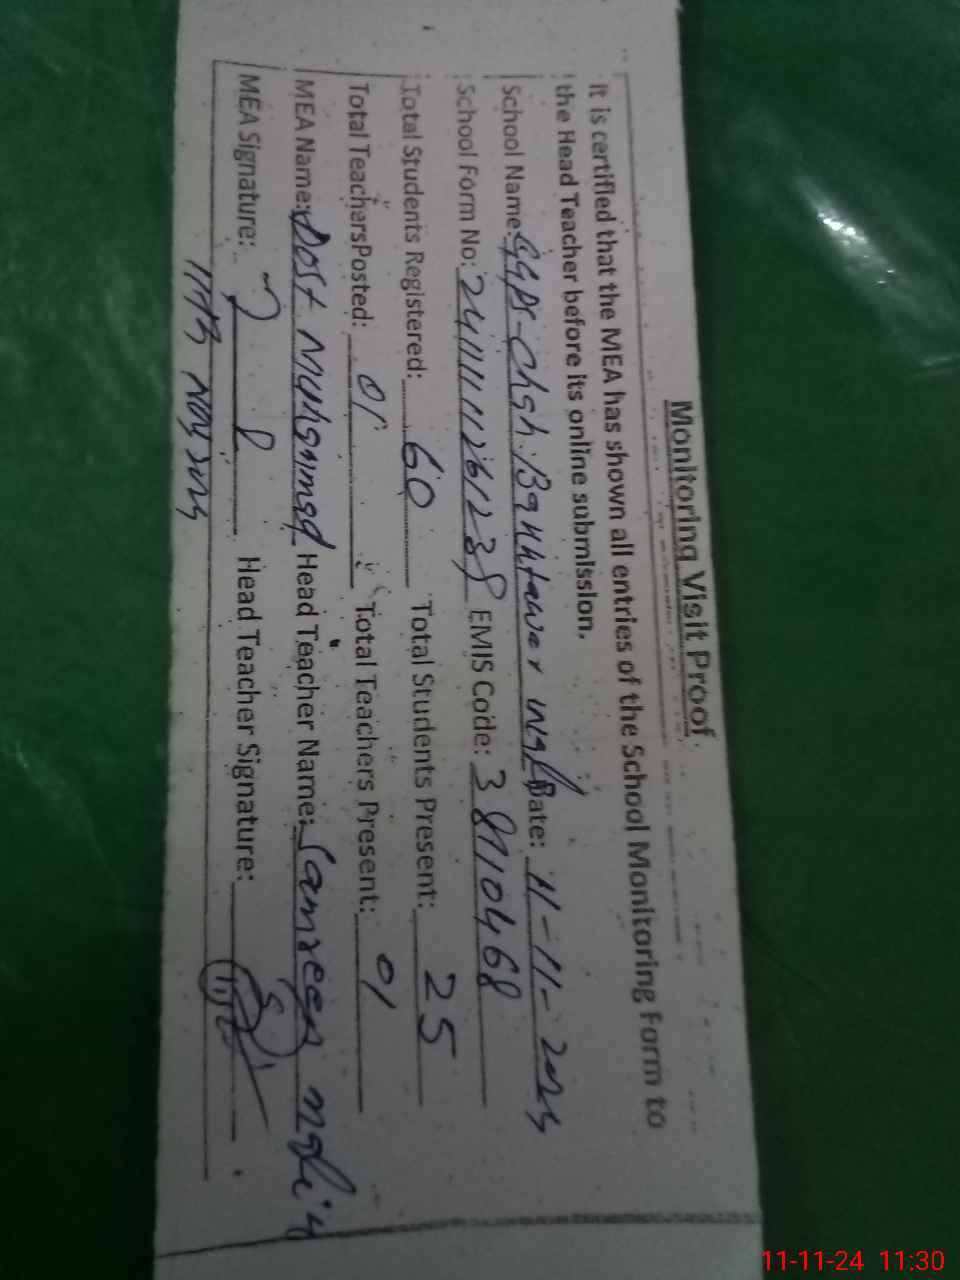 Monitoring Visit Proof
It is certified that the MEA has shown all entries of the School Monitoring Form to
the Head Teacher before its online submission.
School Name: GGPS-Chah Bakhtawar Wala Date: 11-11-2024
School Form No: EMIS Code: 38110468
Total Students Registered: 60 Total Students Present: 25
Total TeachersPosted: 01 Total Teachers Present: 01
MEA Name: Dost Muhammad Head Teacher Name: Samreen
MEA Signature: Head Teacher Signature:
11-11-24 11:30